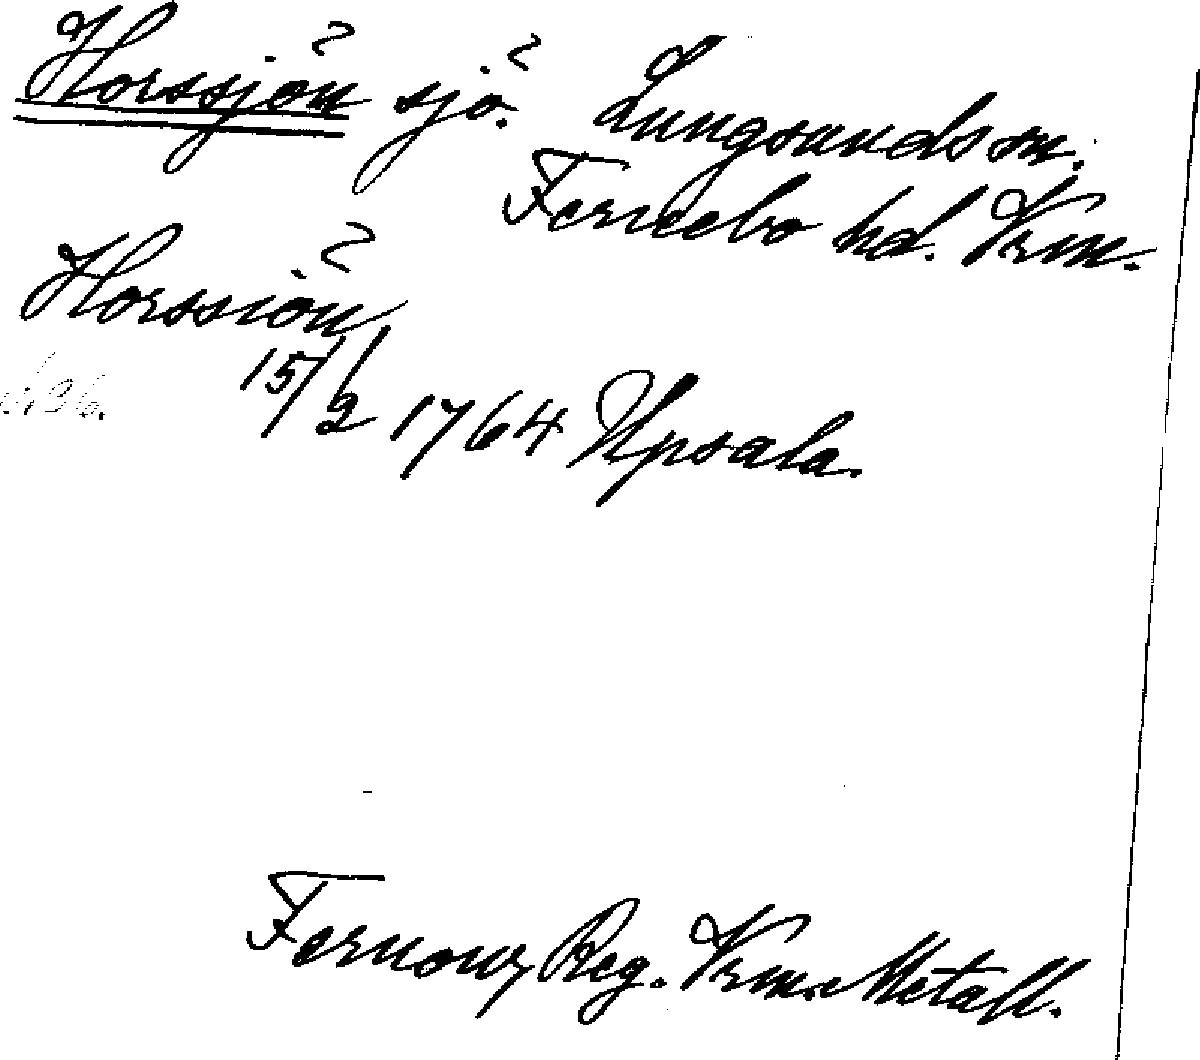 Horssjön sjö. Lungsunds sn.
Fernebo hd. Vrm.
Horssiön
15/2 1764 Upsala.
Fernow, Reg. Vrm. Metall.